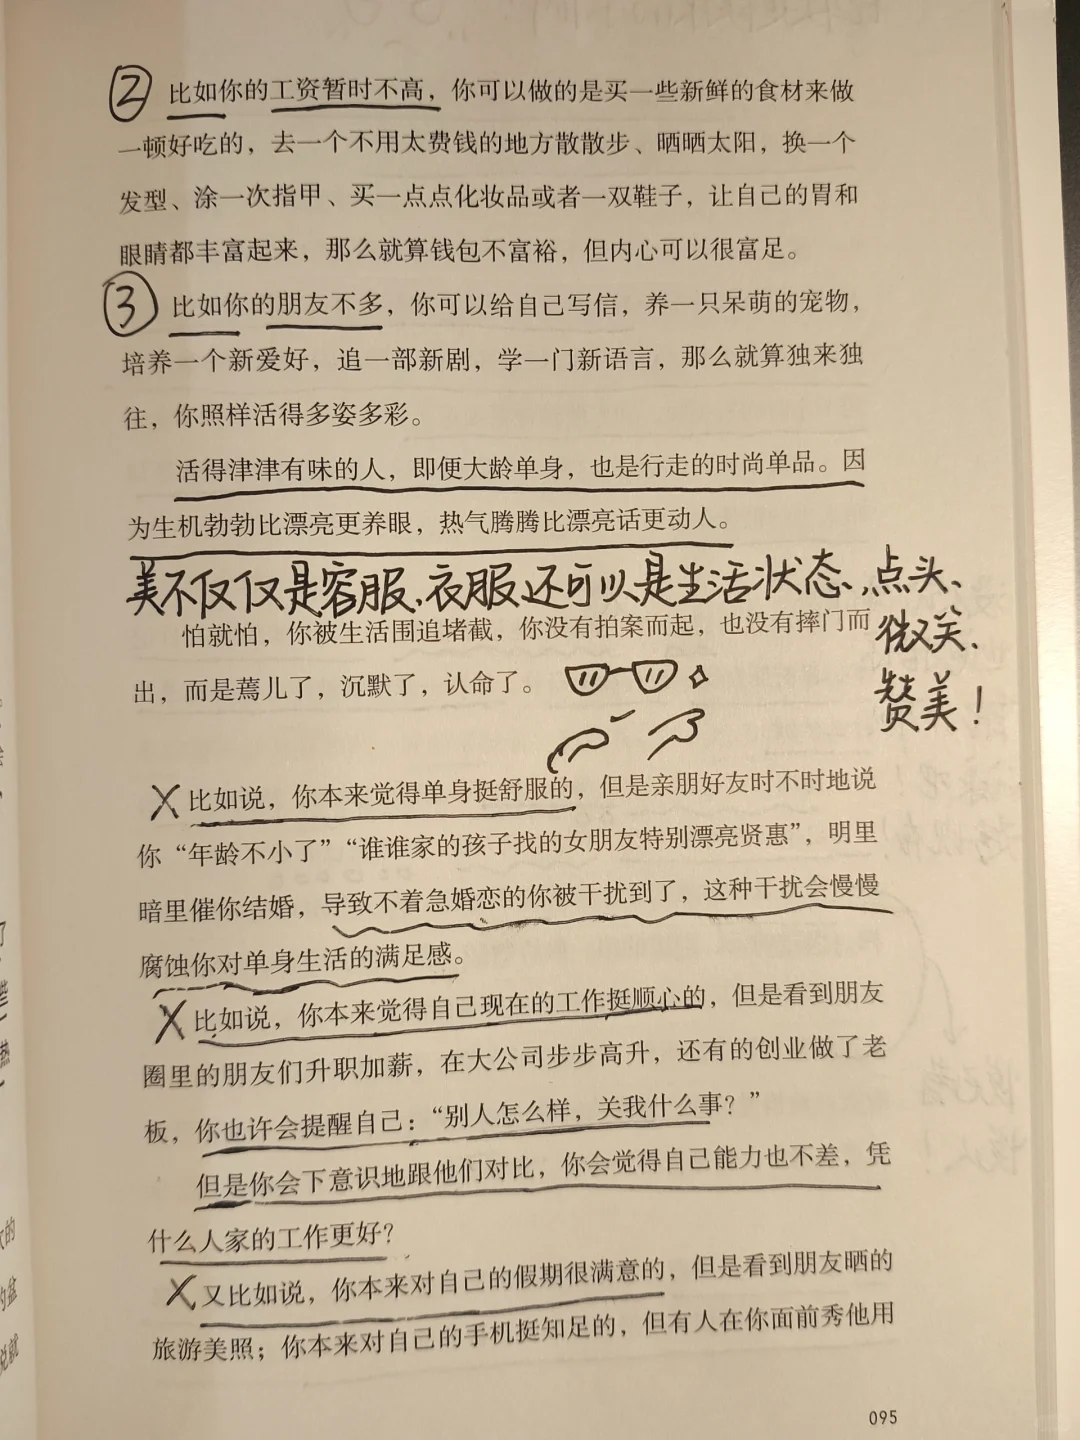 ② 比如你的工资暂时不高，你可以做的是买一些新鲜的食材来做
一顿好吃的，去一个不用太费钱的地方散散步、晒晒太阳，换一个
发型、涂一次指甲、买一点点化妆品或者一双鞋子，让自己的胃和
眼睛都丰富起来，那么就算钱包不富裕，但内心可以很富足。
③ 比如你的朋友不多，你可以给自己写信，养一只呆萌的宠物，
培养一个新爱好，追一部新剧，学一门新语言，那么就算独来独
往，你照样活得多姿多彩。
活得津津有味的人，即便大龄单身，也是行走的时尚单品。因
为生机勃勃比漂亮更养眼，热气腾腾比漂亮话更动人。
美不仅仅是容服、衣服、还可以是生活状态、点头、
微笑、
赞美！
怕就怕，你被生活围追堵截，你没有拍案而起，也没有摔门而
出，而是蔫儿了，沉默了，认命了。
X 比如说，你本来觉得单身挺舒服的，但是亲朋好友时不时地说
你“年龄不小了”“谁谁家的孩子找的女朋友特别漂亮贤惠”，明里
暗里催你结婚，导致不着急婚恋的你被干扰到了，这种干扰会慢慢
腐蚀你对单身生活的满足感。
X 比如说，你本来觉得自己现在的工作挺顺心的，但是看到朋友
圈里的朋友们升职加薪，在大公司步步高升，还有的创业做了老
板，你也许会提醒自己：“别人怎么样，关我什么事？”
但是你会下意识地跟他们对比，你会觉得自己能力也不差，凭
什么人家的工作更好？
X 又比如说，你本来对自己的假期很满意的，但是看到朋友晒的
旅游美照；你本来对自己的手机挺知足的，但有人在你面前秀他用
095